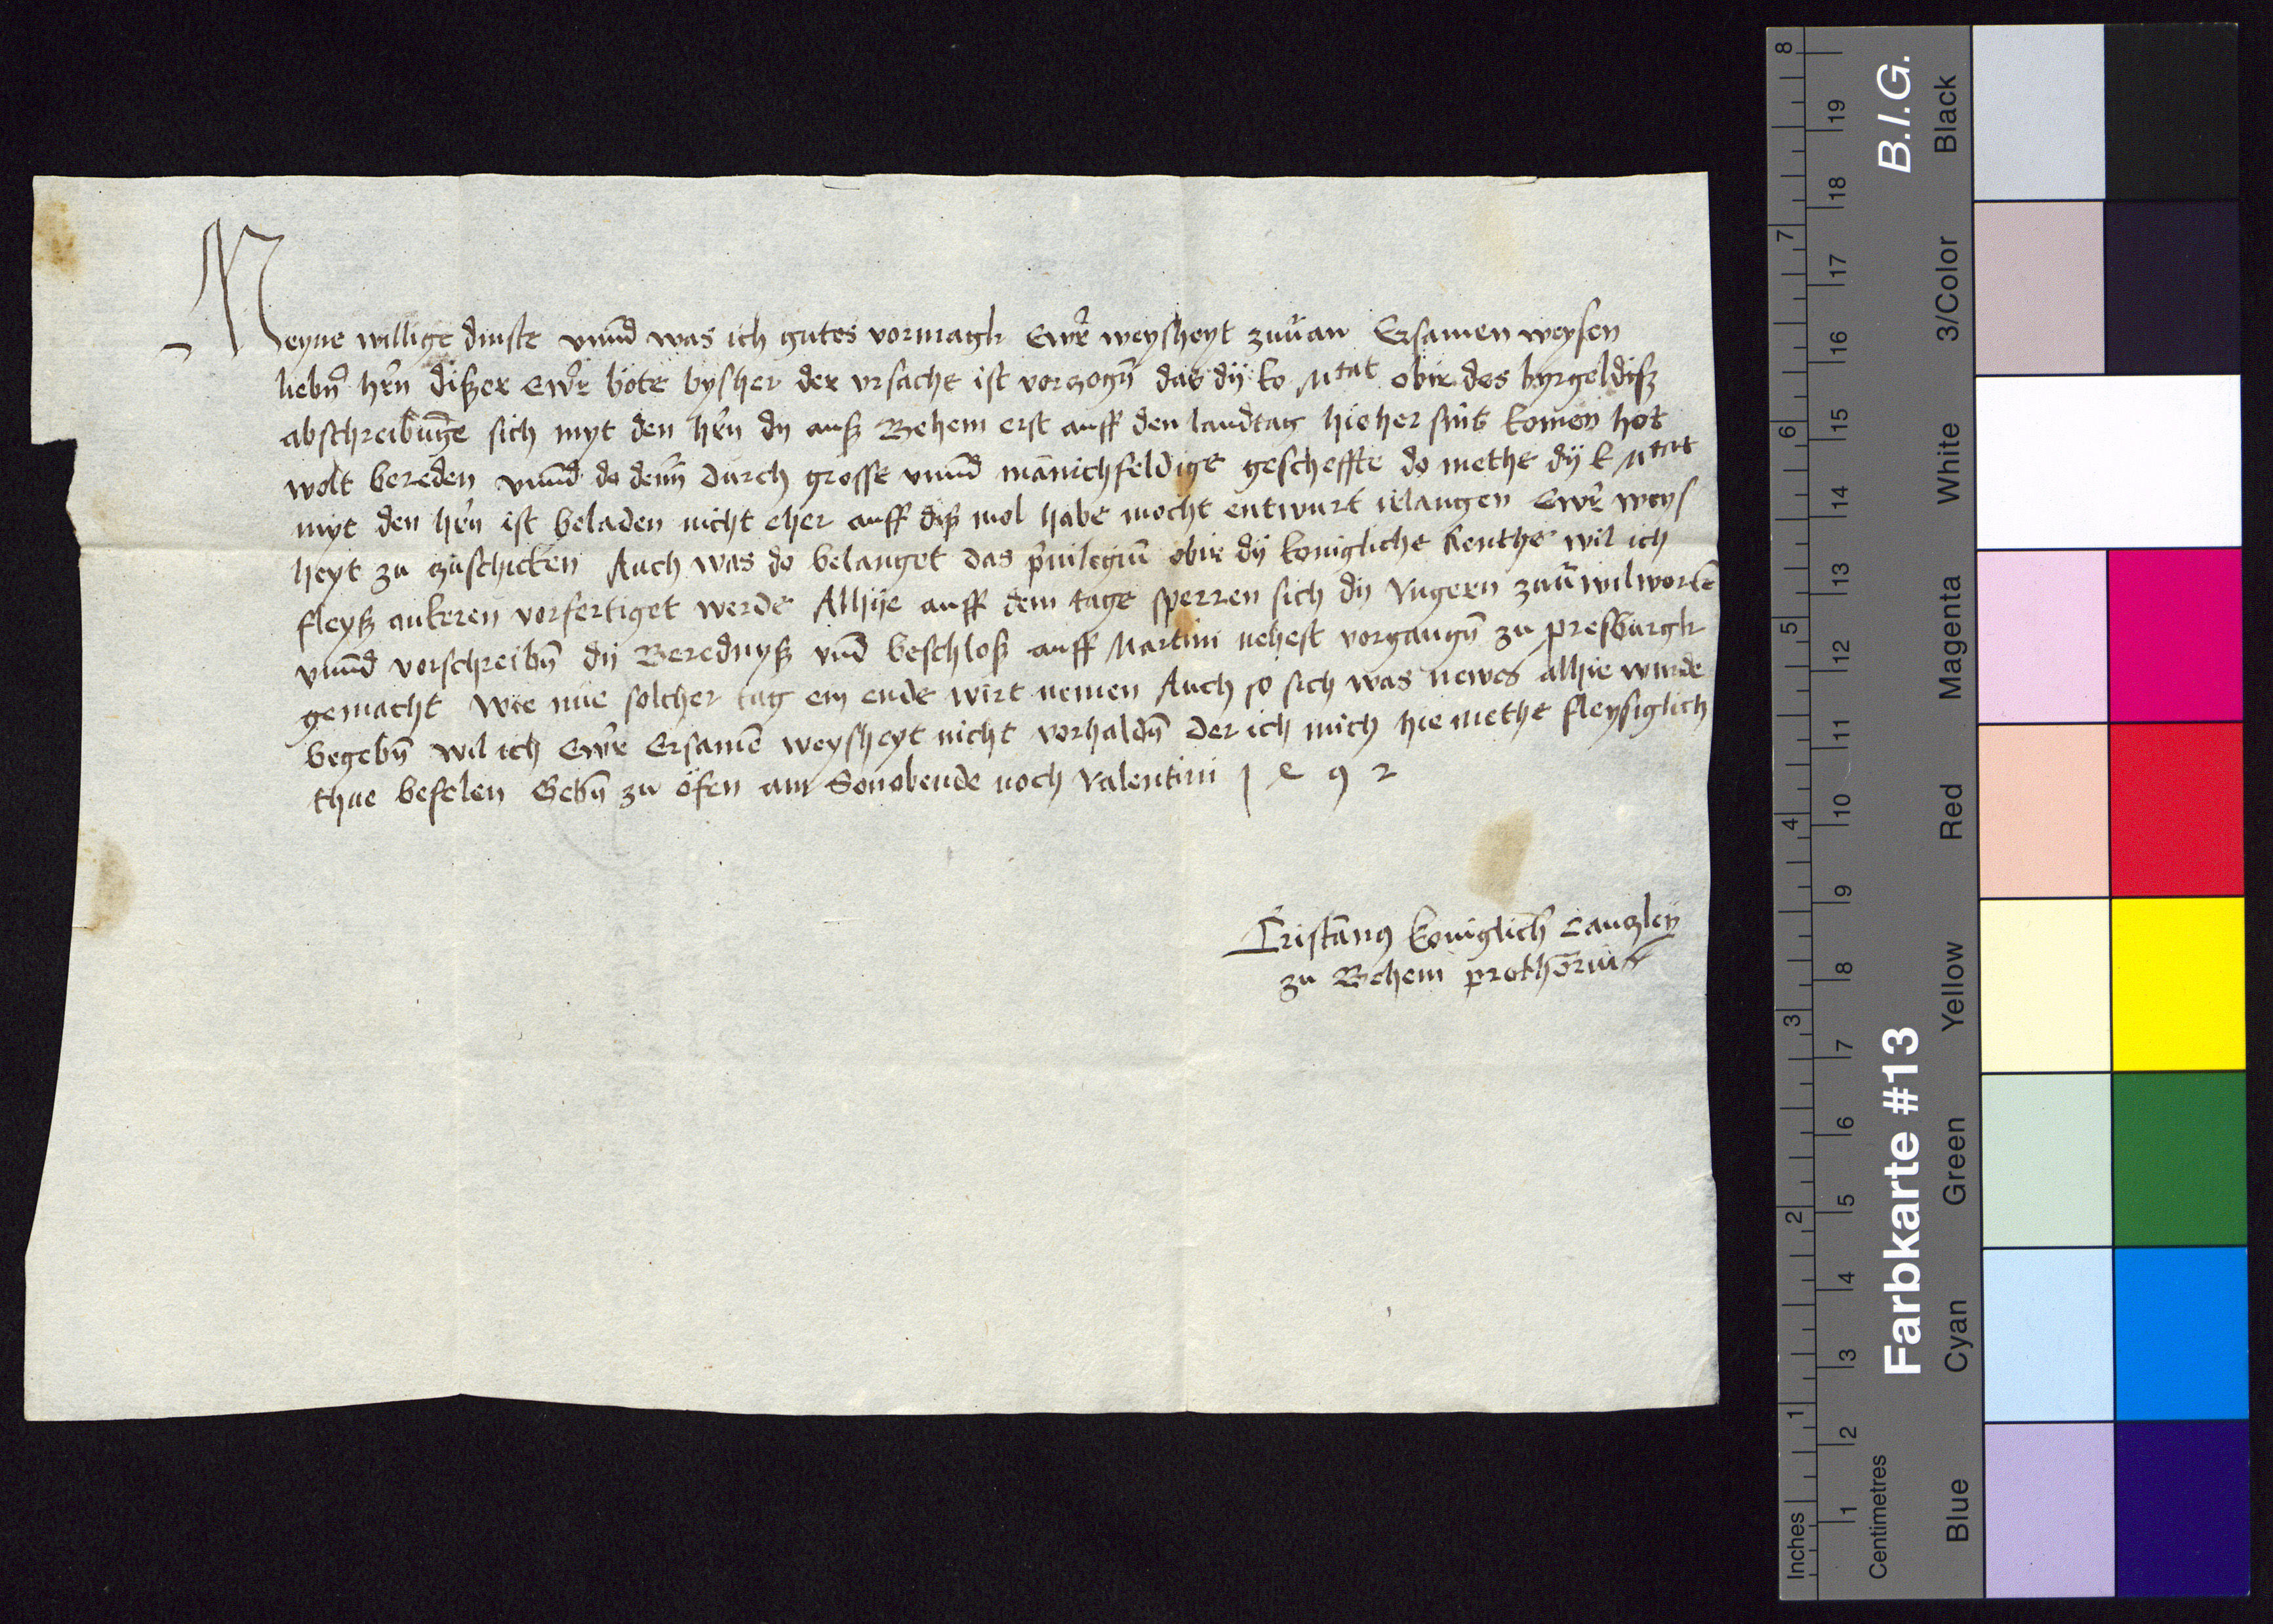 Meyne willige dinste vnnd was ich gutes vormagk Ewr̄ weysheyt zuuͦan Ersamen weysen
liebñ hr̄n dißer Ewr̄ bote bysher der vrsache ist vorzogñ das dÿ ko Mtat obir des byrgeldiß
abschreibunge sich myt den hr̄n dy auß Behem erst auff den landtag hieher sint komen hot
wolt bereden vnnd do denn durch grosse vnnd mānichfeldige gescheffte do methe dÿ k Mtat
myt den hr̄n ist beladen nicht eher auff diß mol habe mocht entwurt irlangen Ewr̄ weys
heyt zu zuschicken Auch was do belanget das p̄uilegiū obir dÿ konigliche Renthe wil ich
fleyß ankeren vorfertiget werde Alhÿe auff dem tage sperren sich dÿ Vngern zuuͦwilworen̄
vnnd vorschreibñ dÿ Berednyß vnd beschloß auff Martini nehest vorgangñ zu presburgk
gemacht wie nue solcher tag ein ende wirt nemen Auch so sich was newes alhie wurde
begebñ wil ich Ewr̄ Ersamē weysheyt nicht vorhaldñ der ich mich hie methe fleysiglich
thue befelen Gebñ zu ofen am Sonobende noch Valentini 1 4 9 2
Cristānꝰ koniglich̄ Canzley
zu Behem prothōriuß
B.I.G.
Farbkarte #13
Black
3/Color
White
Magenta
Red
Yellow
Green
Cyan
Blue
8
7
6
5
4
3
2
1
Inches
19
18
17
16
15
14
13
12
11
10
9
8
7
6
5
4
3
2
1
Centimetres